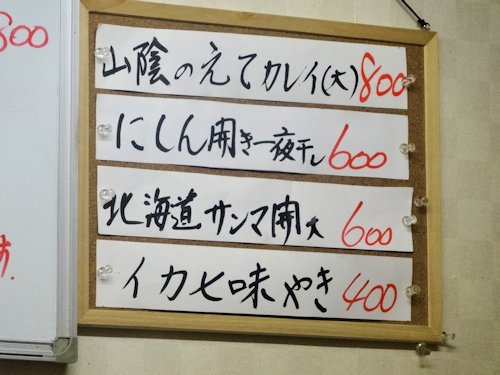 800
山陰のえてカレイ(大)800
にしん開き一夜干し600
北海道サンマ開大 600
イカ七味やき400